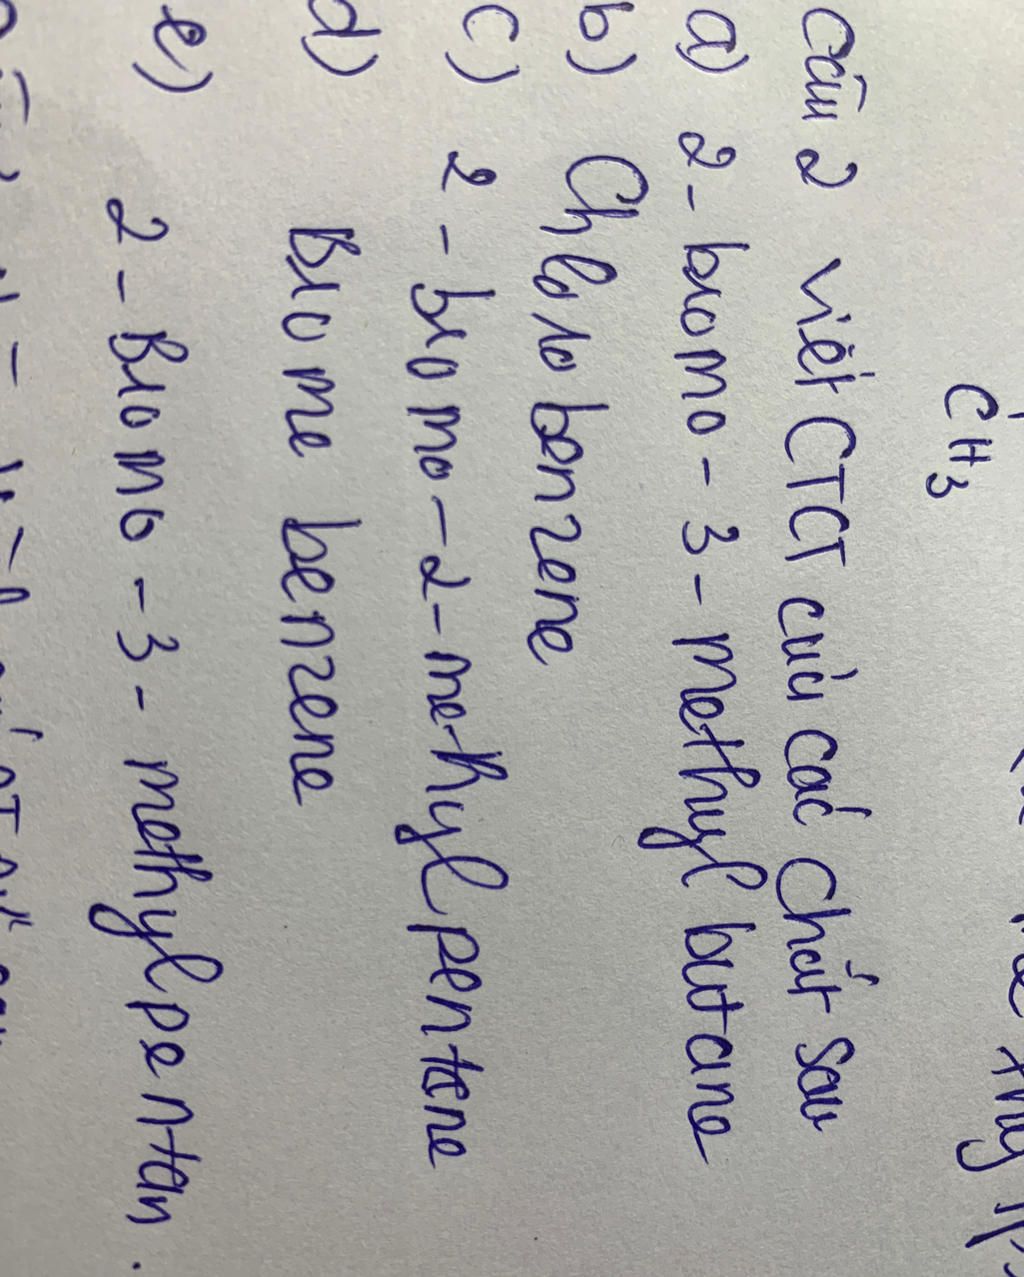 CH3
Câu 2 viết CTCT của các chất sau
a) 2-bromo-3-methyl butane
b) Chlorobenzene
c) 2-bromo-2-methylpentane
d) Brome benzene
e) 2-Bromo-3-methylpentan.